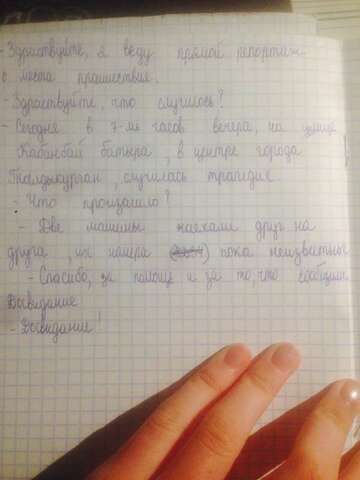 - Здраствуйте, я веду прямой репортаж
с места проишествие.
- Здраствуйте, что случилось?
- Сегодня в 7-мь часов вечера, на улице
Кабанбай батыра, в центре города
Талдыкурган, случилась трагедие
- Что произашло?
- Две машины наехали друг на
друга, их номера пока неизвестны
- Спасибо, за помощь и за то, что сообщили
Досвидание
- Досвидание!